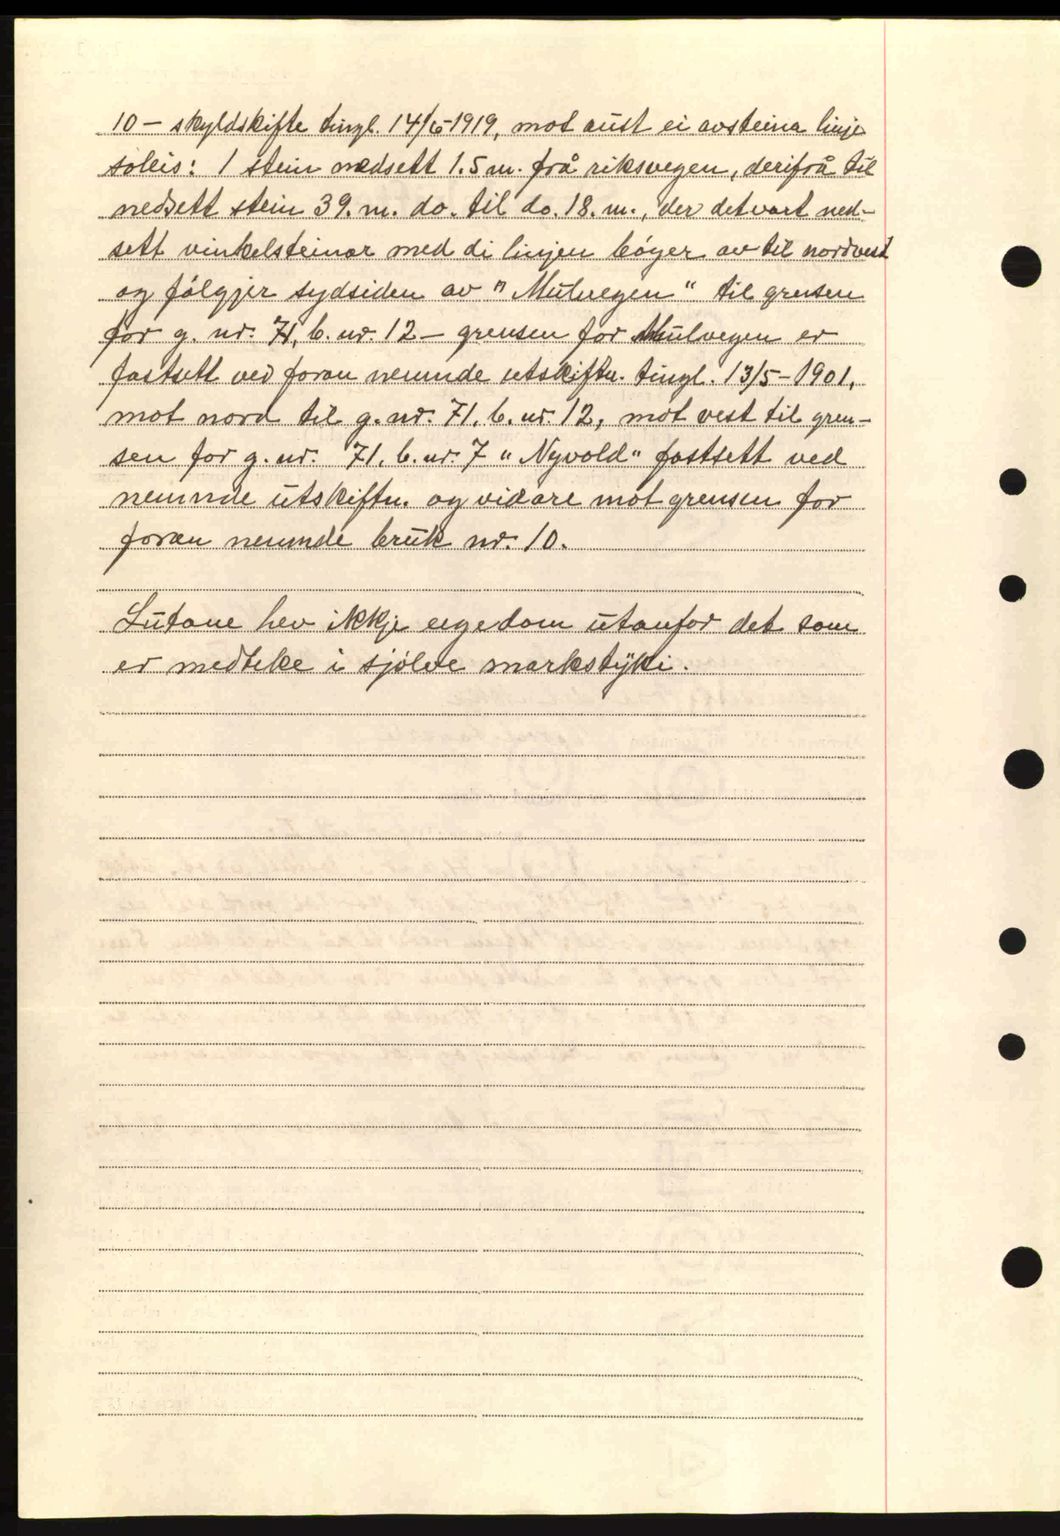 10 – skyldskifte tingl. 14/6-1919, mot aust ei avsteina linje
soleis: 1 stein nedsett 1.5 m. frå riksvegen, derifrå til
nedsett stein 39. m. do. til do. 18. m., der det vart ned-
sett vinkelsteinar med di linjen bøyer av til nordvest
og følgjer sydsiden av "Mulvegen" til grensen
for g. nr. 71, b. nr. 12 – grensen for Mulvegen er
fastsett ved foran nemnde utskiftn. tingl. 13/5-1901.
mot nord til g. nr. 71. b. nr. 12, mot vest til gren-
sen for g. nr. 71. b. nr. 7 "Nyvold" fastsett ved
nemnde utskiftn. og vidare mot grensen for
foran nemnde bruk nr. 10.
Lutane hev ikkje eigedom utanfor det som
er medteke i sjølve markstykki.